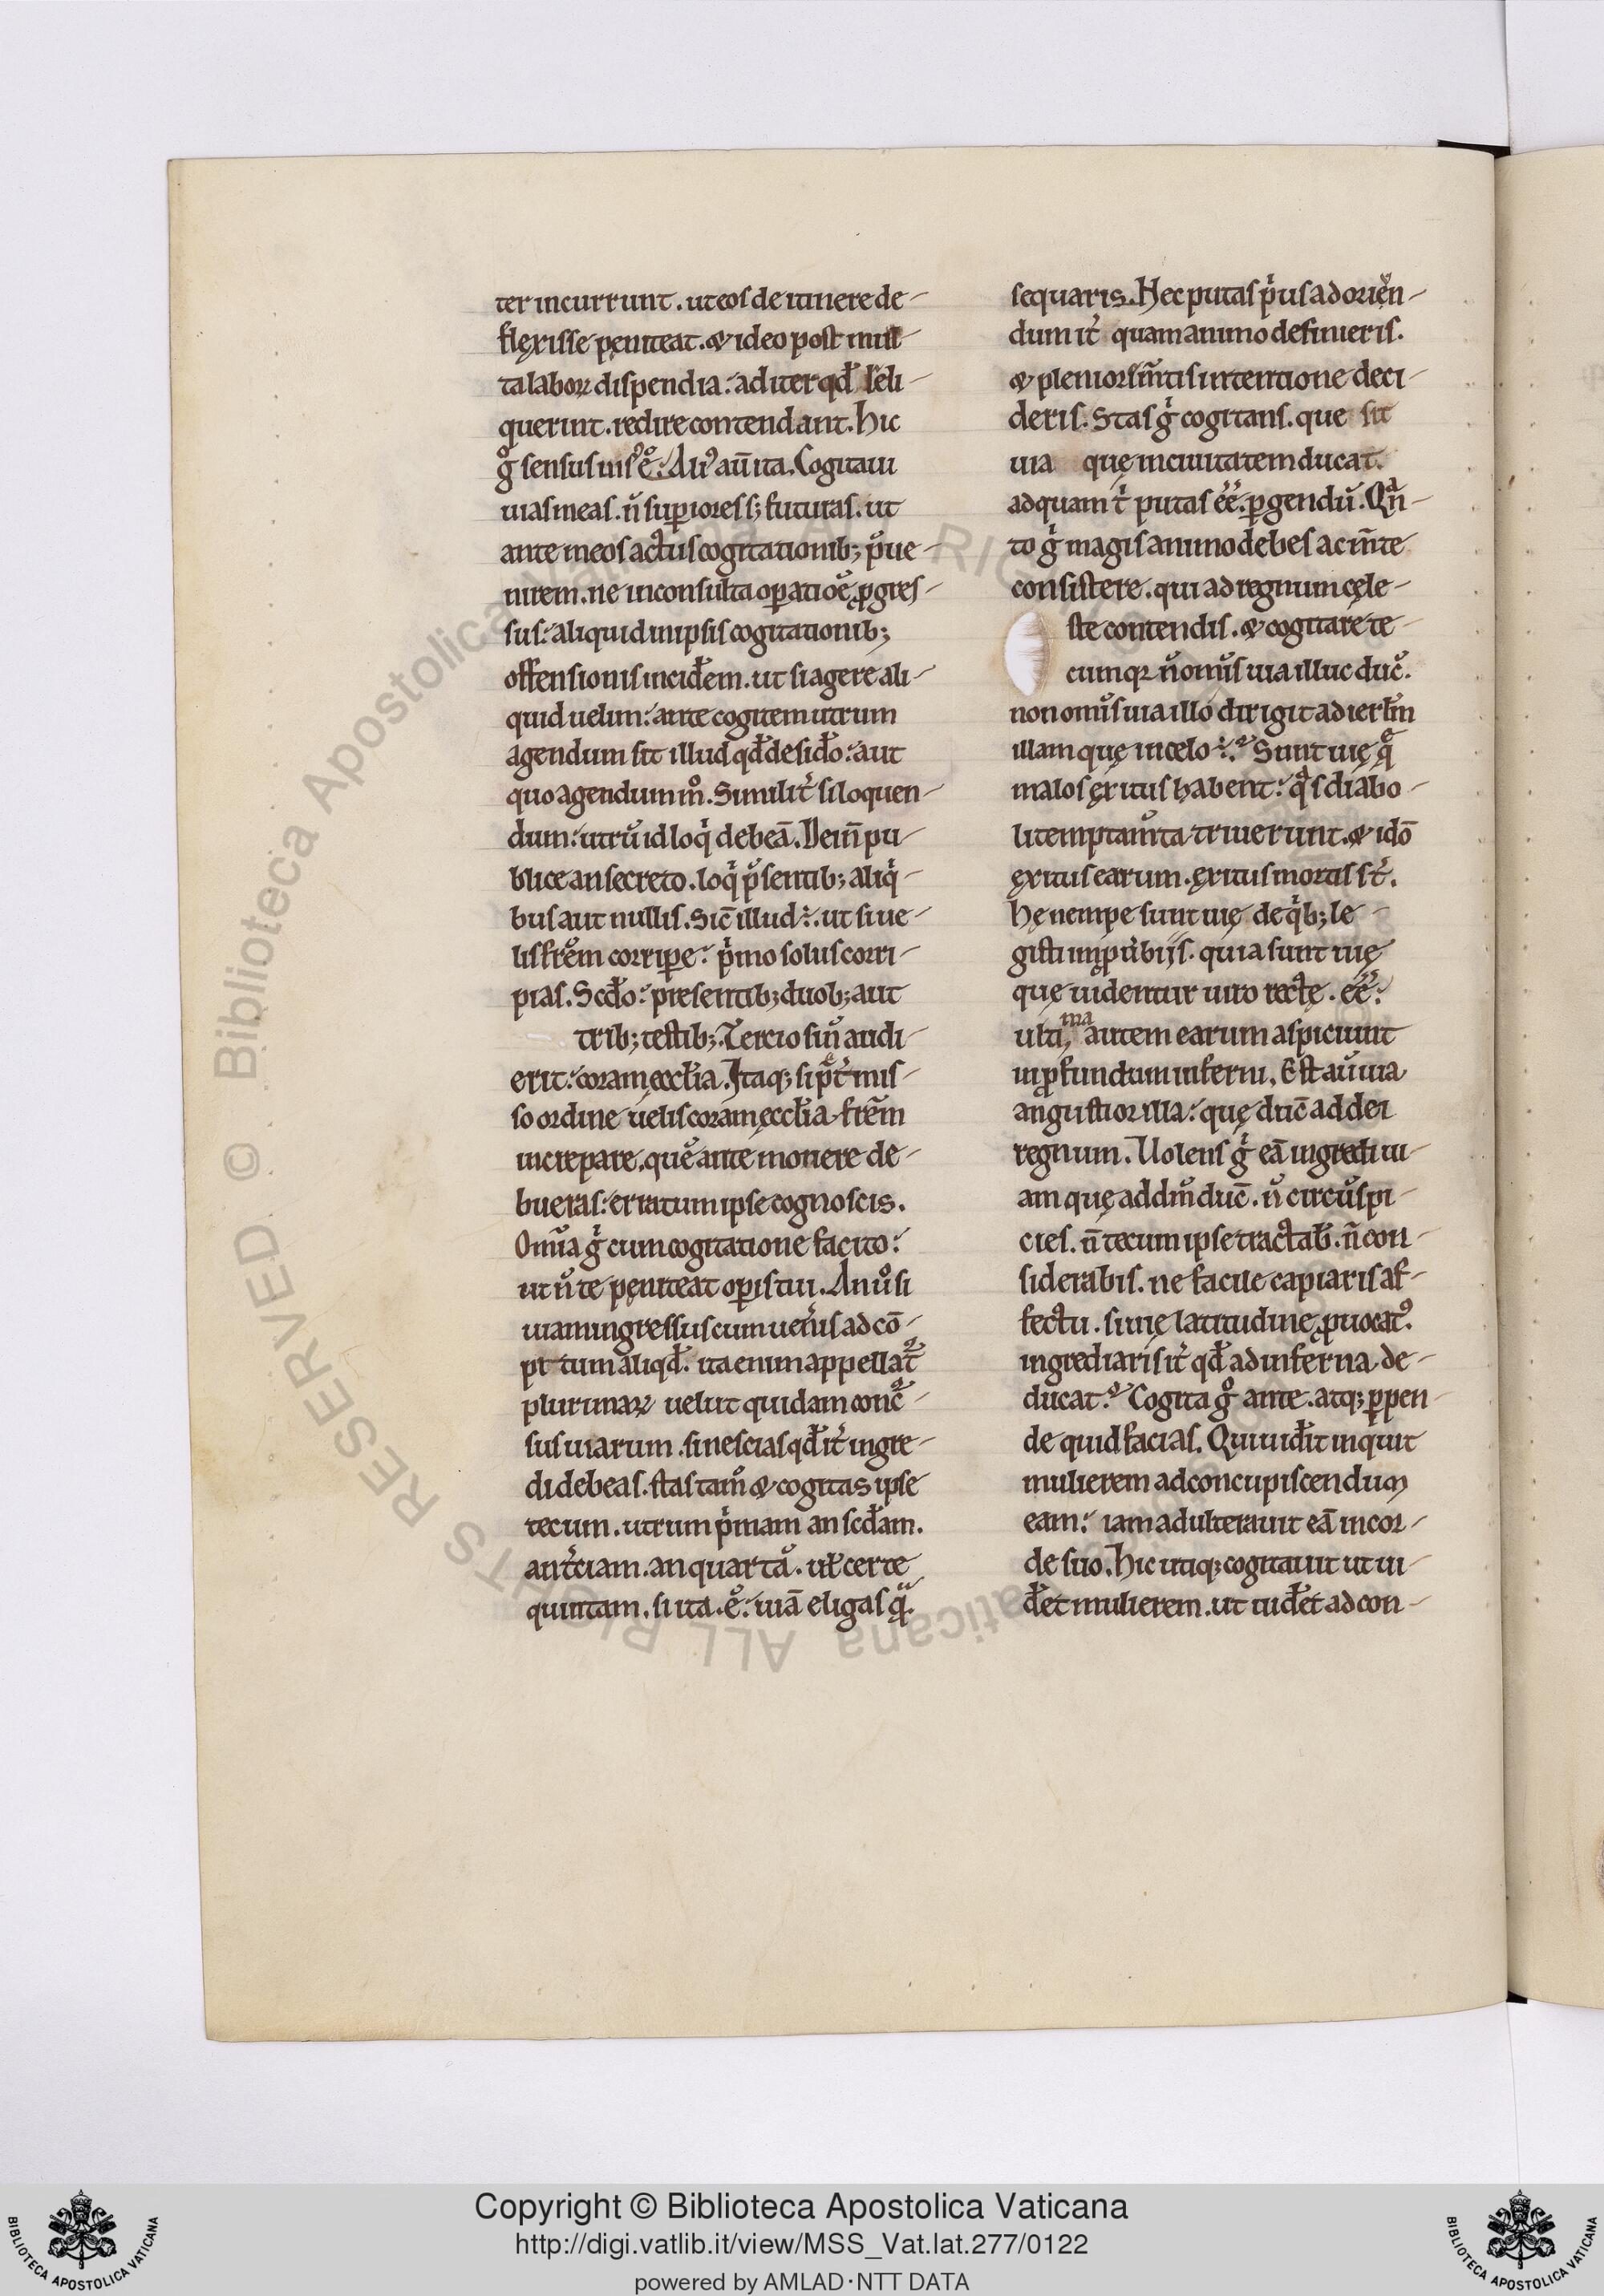 ter incurrunt. ut eos de itinere de-
flęxisse pęniteat. & ideo post mul-
ta laboꝝ dispendia: ad iter qđ reli-
querunt. redire contendant. hic
g̊ sensus uisꝰ ē: Aliꝰ aū ita. Cogitaui
uias meas. ñ superiores s; futuras. ut
ante meos actus cogitationib; pͥue-
nirem. ne inconsulta opatiōe ꝓgres-
sus: aliquid in ipsis cogitationib;
offensionis inciđem. ut si agere ali-
quid uelim: ante cogitem utrum
agendum sit illud qđ desiđo: aut
quo agendum m̊. Similit̉ si loquen-
dum: utrū id loqͥ debeā. Dein̄ pu-
blice an secreto. loqͥ p̄sentib; aliqͥ-
bus aut nullis. Sic̄ illud: ut si ue-
lis frēm corripe: pͥmo solus corri-
pias. Scđo: presentib; duob; aut
trib; testib;. Tercio si ñ audi-
erit: coram ęcclia. Itaq; si p̄t̉mis-
so ordine uelis coram ęcclia frēm
increpare. quē ante monere de-
bueras: erratum ipse cognoscis.
Omīa gͥ cum cogitatione facito:
ut ñ te pęniteat operis tui. An ū si
uiam ingressus cum ueneris ad cō-
pi tum aliqđ. ita enim appellat̃
plurimaꝝ uelut quidam conc̄-
sus uiarum. si nescias qđ it̉ ingre-
di debeas. stas tam̄ & cogitas ipse
tecum. utrum pͥmam an scđam.
an t̉ciam. an quartā. uł certe
quintam. si ita. ē: uiā eligas qͣ.
sequaris. Hec putas pͥus adoriēn-
dum it̉ quam animo definieris.
& pleniori m̄tis intentione deci-
deris. Stas gͥ cogitans. que sit
uia quę in ciuitatem ducat.
ad quam t̉ putas eē. pergendū. Qͣn-
to gͥ magis animo debes ac m̄te
consistere. qui ad regnum cęle-
ste contendis. & cogitare te-
cumqꝫ ñ omīs uia illuc duc̄.
non omīs uia illo dirigit ad ierłm
illam quę in cęlo:. Sunt uię q̄
malos ęxitus habent: qͣs diabo-
li temptam̄ta triuerunt. & idō
ęxitus earum. ęxitus mortis st̄.
hę nempe sunt uię de qͥb; le-
gisti in ꝓuerbijs. quia sunt uię
quę uidentur uiro rectę. eē:
ultima autem earum aspiciunt
in ꝓfundum inferni. Est aū uia
angustior illa: quę duc̄ ad dei
regnum. Uolens gͥ eā ingredi ui-
am quę ad dm̄ duc̄. ñ circūspi-
cies. ñ tecum ipse tractab̃. ñ con-
siderabis. ne facile capiaris af-
fectu. si uię latitudine ꝓuocatꝰ.
ingrediaris it̉ qđ ad inferna de-
ducat. Cogita g̊ ante. atq; ꝑpen-
de quid facias. Qui uiđit inquit
mulierem ad concupiscendum
eam: iam adulterauit eā in cor-
de suo. hic utiq; cogitauit ut ui-
đet mulierem. ut uiđet ad con-
© Biblioteca Apostolica Vaticana ALL RIGHTS RESERVED
Copyright © Biblioteca Apostolica Vaticana
http://digi.vatlib.it/view/MSS_Vat.lat.277/0122
powered by AMLAD·NTT DATA
BIBLIOTECA APOSTOLICA VATICANA
BIBLIOTECA APOSTOLICA VATICANA